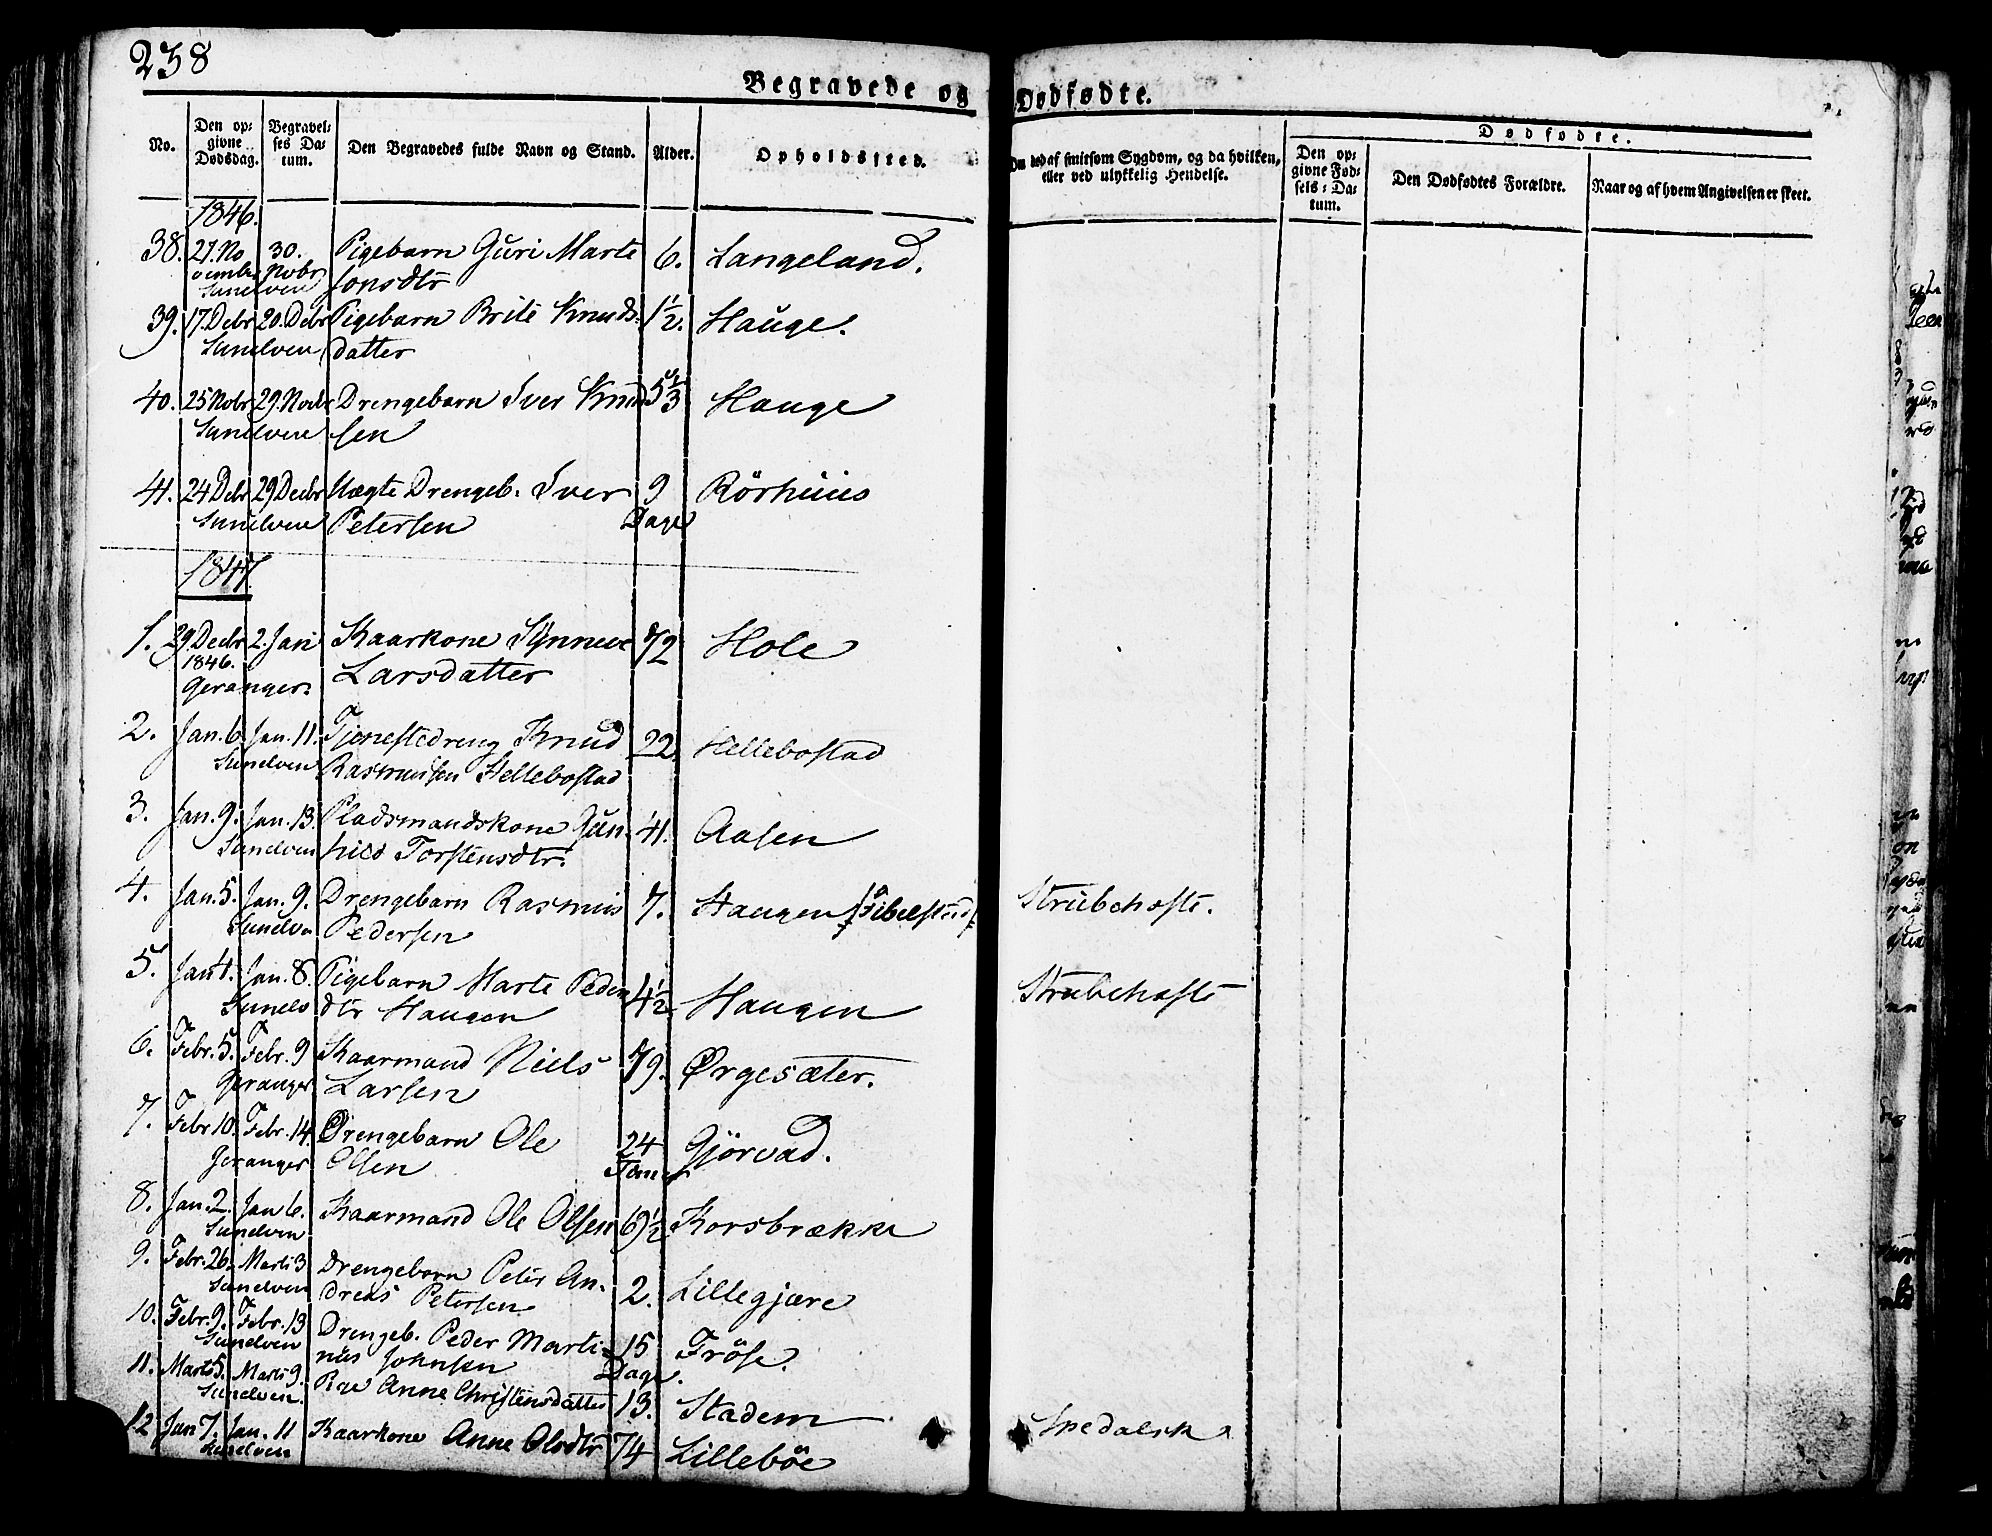 238
Begravede og Dødfødte.
No.
Den opgivne Dødsdag.
Begravelses Datum.
Den Begravedes fulde Navn og Stand.
Alder.
Opholdssted.
Om død af smitsom Sygdom, og da hvilken, eller ved ulykkelig Hendelse.
Dødfødte.
Den opgivne Fødsels-Datum.
Den Dødfødtes Forældre.
Naar og af hvem Angivelsen er skeet.
1846.
38. 27. No 30. Pigebarn Guri Marte 6. Langeland.
vember Nobr Jonsdtr
Sunelven
39. 17. Debr 20. Debr Pigebarn Brite Knuds- 1½. Hauge.
Sunelven datter
40. 25 Nobr 29. Novbr Drengebarn Iver Knud 5⅔ Hauge
Sunelven sen
41. 24 Debr 29 Decbr Uægte Drengeb. Iver 9 Rörhuus
Sunelven Petersen Dage
1847.
1. 29 Decbr 2. Jan Kaarkone Synneve 72 Hole
1846. Larsdatter
Geranger.
2. Jan. 6. Jan. 11. Tjenestedreng Knud 22. Hellebostad
Sunelven Rasmussen Hellebostad
3. Jan. 9. Jan. 13. Pladsmandskone Gun- 41. Aasen
Sunelven hild Torstensdtr.
4. Jan. 5. Jan. 9. Drengebarn Rasmus 7. Haugen /Fibelstad/ Strubehoste.
Sunelv Pedersen
5. Jan 4. Jan. 8. Pigebarn Marte Peders 4½ Haugen Strubehoste
Sunelv dtr Haugen
6. Febr. 5. Febr. 9 Kaarmand Niels 79. Ørgesæter.
Geranger Larsen
7. Febr 10. Febr. 14. Drengebarn Ole 24 Gjörvad.
Geranger Olsen Timer
8. Jan. 2. Jan 6. Kaarmand Ole Olsen 69½ Korsbrække
Sunelven
9. Febr. 26. Marti 3 Drengebarn Peter An- 2. Lillegjære
Sunelven dreas Petersen
10. Febr. 9. Febr. 13 Drengeb. Peder Marti- 15 Fröse.
Sunelven nus Johnsen Dage.
11. Marts 5. Marti 9. Pige Anne Christensdatter 13. Stadem
Sunelven.
12 Jan 7. Jan. 11 Kaarkone Anne Olsdtr 74 Lillebøe Spedalsk
Sunelven